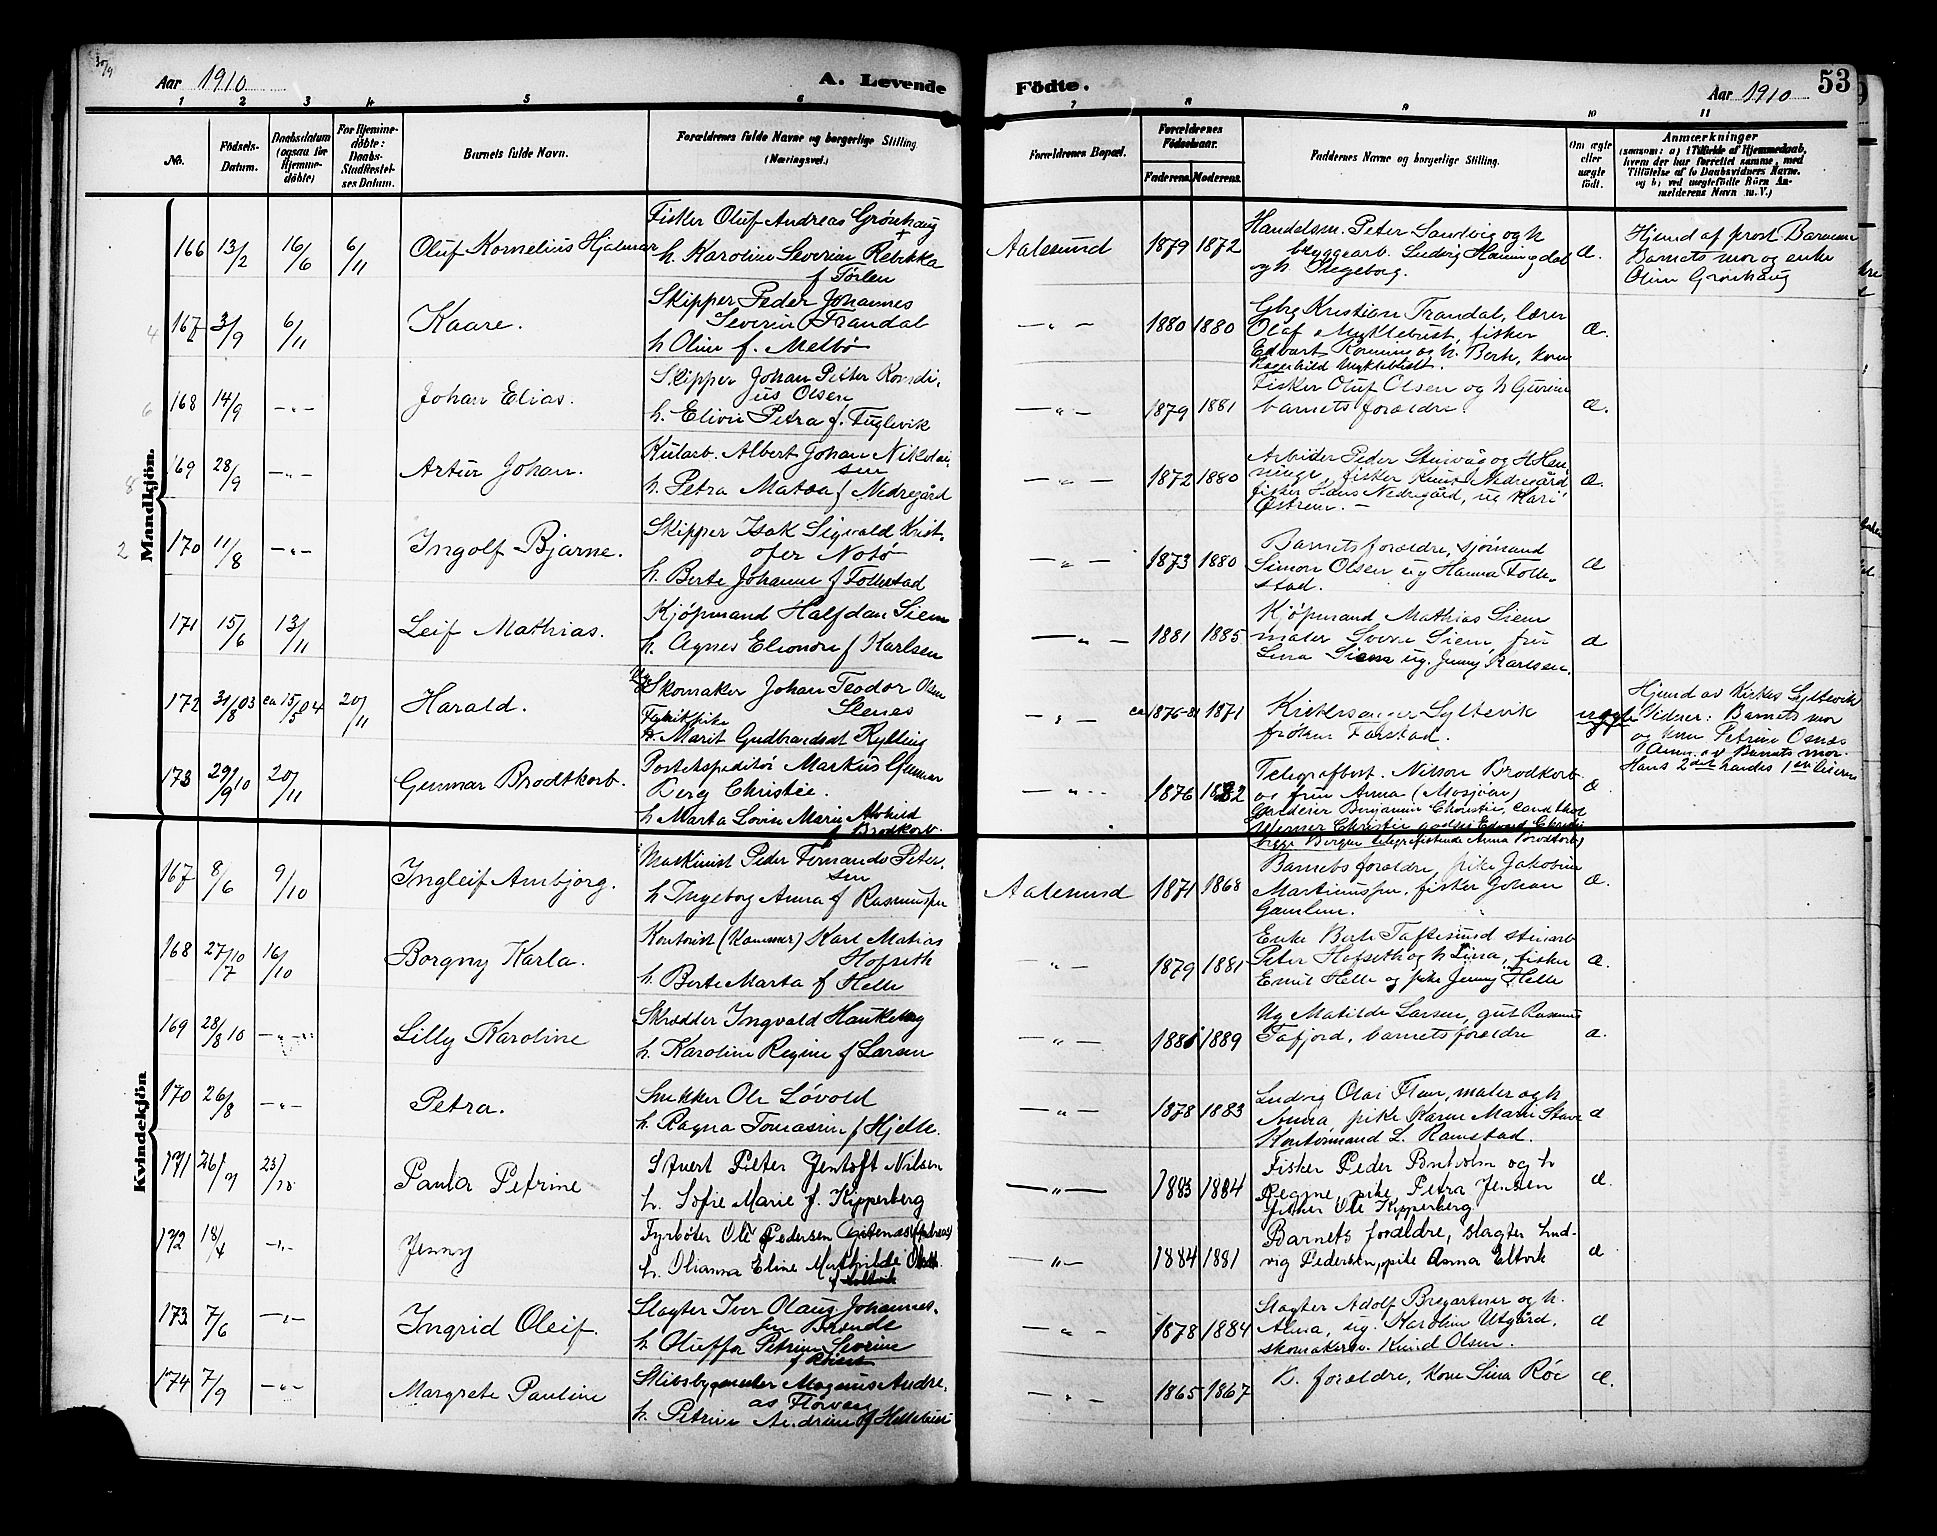 Aar 1910
A. Levende
Födte.
Aar 1910
53
1 2 3 4 5 6 7 8 9 10 11
No.
Födsels-
Datum.
Daabsdatum
(ogsaa for
Hjemme-
döbte)
For Hjemme-
döbte:
Daabs-
Stadfæstel-
ses Datum.
Barnets fulde Navn.
Forældrenes fulde Navne og borgerlige Stilling
(Næringsvei.)
Forældrenes Bopæl.
Forældrenes
Födselsaar.
Faderens. Moderens.
Faddernes Navne og borgerlige Stilling.
Om ægte
eller
uægte
födt.
Anmærkninger
(saasom: a) i Tilfælde af Hjemmedaab,
hvem der har forrettet samme, med
Tilföielse af to Daabsvidners Navne.
og b) ved uægtefödte Börn An-
melderens Navn m. V.)
Mandkjön.
166 13/2 16/6 6/11 Oluf Kornelius Hjalmar
Fisker Oluf Andreas Grönhaug
h. Karoline Severin Rebekka
f Torlen
Aalesund 1879 1872
Handelsm. Peter Sandvig og h
byggearb. Ludvig Honningdal
og h. Segeborg.
æ.
Hjemd af prost Barman
Barnets mor og enke
Oline Grönhaug
167 3/9 6/11 Kaare.
Skipper Peder Johannes
Severin Frandal
h Oline f. Melbö
— " — 1880 1880
Gbrg Kristian Frandal, lærer
Olaf Myklebust, fisker
Edvart Romming og h. Berte, kone
Ragnhild Myklebust.
æ.
168 14/9 — " — Johan Elias.
Skipper Johan Peter Romdi,
jus Olsen
h. Elivin Petra f. Fuglevik
— " — 1879 1881
Fisker Oluf Olsen og h Gurine
barnets foræeldre.
æ.
169 28/9 — " — Artur Johan.
Kularb. Albert Johan Nikolai-
sen
h. Petra Matea f Nedregård
— " — 1872 1880
Arbeider Peder Steinvåg og H Hen,
ninge, fisker Knut Nedregård
fisker Hans Nedregård, ug Kari
Östrem. —
æ.
170 11/8 — " — Ingolf Bjarne.
Skipper Isak Sigvald Krist-
ofer Notö
h. Berte Johanne f Follestad
— " — 1873 1880
Barnets foræeldre, sjömand
Simon Olsen ug Hanna Folle-
stad.
æ
171 15/6 13/11 Leif Mathias.
Kjöpmand Halfdan Siem
h. Agnes Eleonore f Karlsen
— " — 1881 1885
Kjöpmand Mathias Siem
maler Sverre Siem, fru
Lina Siem ug. Jenny Karlsen.
æ
172 31/8 03 ca 15/5 04 20/11 Harald.
Skomaker Johan Teodor Olsen
Stenes
Fabrikpike
Marit Gudbrandsdt Kylling
— " — ca 1876-81 1871
Kirkesanger Syltevik
fröken Farstad.
uægte
Hjemd av Kirkes Syltevik
Vidner: Barnets mor
og kone Petrine Osnæs
Anm. av Barnets mor.
Hans 2det hendes 1ste leierm
173 29/9 10 20/11 Gunnar Brodtkorb.
Postekspeditör Markus Gunnar
Berg Christie.
h Marta Lovise Marie Alvhild
f Brodkorb.
— " — 1876 1882
Telegrafbest. Nilson Brodkorb
og frue Anna (Mosjöen)
Garderier Benjamin Christie, candthol
Werner Christie godsei Edvard Christie
begge Bergen telegrafistinde Anna Brodtkorb)
æ
Kvindekjön
167 8/6 9/10 Ingleif Ambjörg.
Maskinist Peder Fernando Peter-
sen
h Ingeborg Anna f Rasmussen
Aalesund 1871 1868
Barnets foræeldre, pike Jakobine
Martinussen, fisker Johan
Gamlem.
æ.
168 27/7 10 16/10 Borgny Karla.
Kontorist (Kæmner) Karl Matias
Hofseth
h. Berte Marta f Helle
— " — 1879 1881
Enke Berte Taftesund stuearb
Peter Hofseth og h Lina, fisker
Emil Helle og pike Jenny Helle
æ.
169 28/8 10 — " — Lilly Karoline
Skrædder Ingvald Haukeberg
h. Karoline Regine f Larsen
— " — 1881 1889
Ug Matilde Larsen, gut Rasmus
Tafjord, barnets foræeldre
æ.
170 26/8 — " — Petra.
Snekker Ole Lövold
h. Ragna Tomasine f Hjelle.
— " — 1878 1883
Ludvig Olai Flem, maler og h
Anna, pike Karen Marie Stave
Kontormand L. Ramstad.
æ
171 26/7 23/10 Paula Petrine
Stuert Peter Jentoft Nilsen
h. Sofie Marie f. Kipperberg
— " — 1883 1884
Fisker Peder Bnholm og h
Regine, pike Petra Jensen
fisker Ole Kipperberg
æ
172 18/4 — " — Jenny
Fyrböter Ole Pedersen Gjitenæs (Andreas)
h. Olianna Eline Mathilde
— " — 1884 1881
Barnets foræeldre, slagter Lud-
vig Pedersen, pike Anna Eltvik
æ
173 7/6 — " — Ingrid Oleif.
Slagter Iver Olaus Johannes-
sen Brænde
h Oluffa Petrine Severine
f Röiset
— " — 1878 1884
Slagter Adolf Bregartner og h.
Alma, ug. Karoline Utgård,
skomakersv. Knud Olsen.
æ
174 7/9 — " — Margrete Pauline
Skibsbygmester Magnus Andre,
as Flörvaag
h. Petrine Andrine f Hellebust
— " — 1865 1867
B. foræeldre, kone Sina Röe
æ.